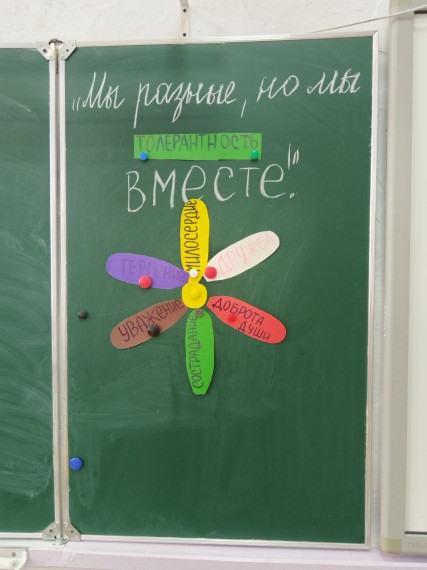 „Мы разные, но мы
ТОЛЕРАНТНОСТЬ
ВМЕСТЕ!"
МИЛОСЕРДИЕ
ТЕРПЕНИЕ
УВАЖЕНИЕ
ДОБРОТА
ДУШИ
СОСТРАДАНИЕ